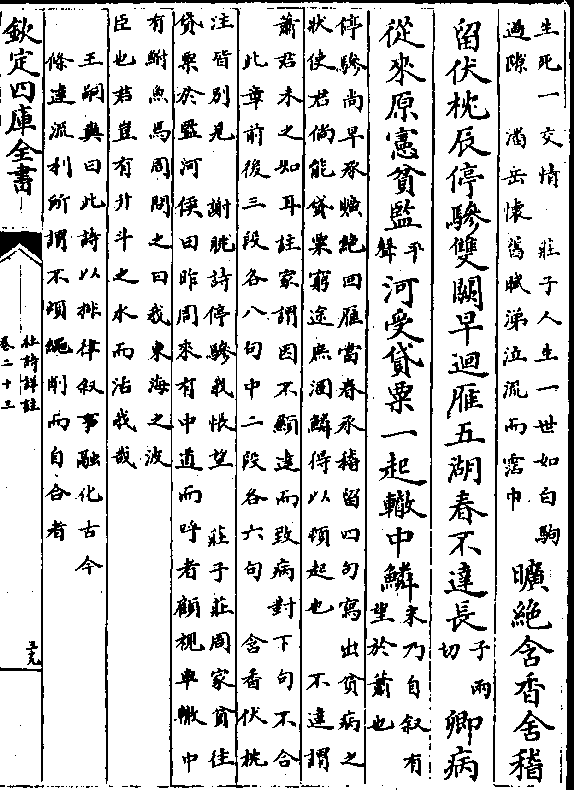 生死一交情　莊子人生一世如白駒
過隙　潘岳懷舊賦涕泣流而霑巾
曠絶含香舍稽
留伏枕辰停驂雙闕早迴雁五湖春不達長子兩切卿病
從來原憲貧監平聲河受貸粟一起轍中鱗末乃自叙有望於蕭也
停驂尚早承曠絶迴雁當春承稽留四句寫出貧病之
狀使君倘能貸粟窮途庶涸鱗得以頓起也　不達謂
蕭君未之知耳註家謂因不顯達而致病對下句不合
此章前後三段各八句中二段各六句　含香伏枕
注皆别見　謝朓詩停驂我悵望　莊子莊周家貧往
貸粟於監河侯曰昨周來有中道而呼者顧視車轍中
有鮒魚焉周問之曰我東海之波
臣也君豈有升斗之水而活我哉
王嗣奭曰此詩以排律叙事融化古今
條達流利所謂不煩繩削而自合者
欽定四庫全書
杜詩詳註
卷二十三